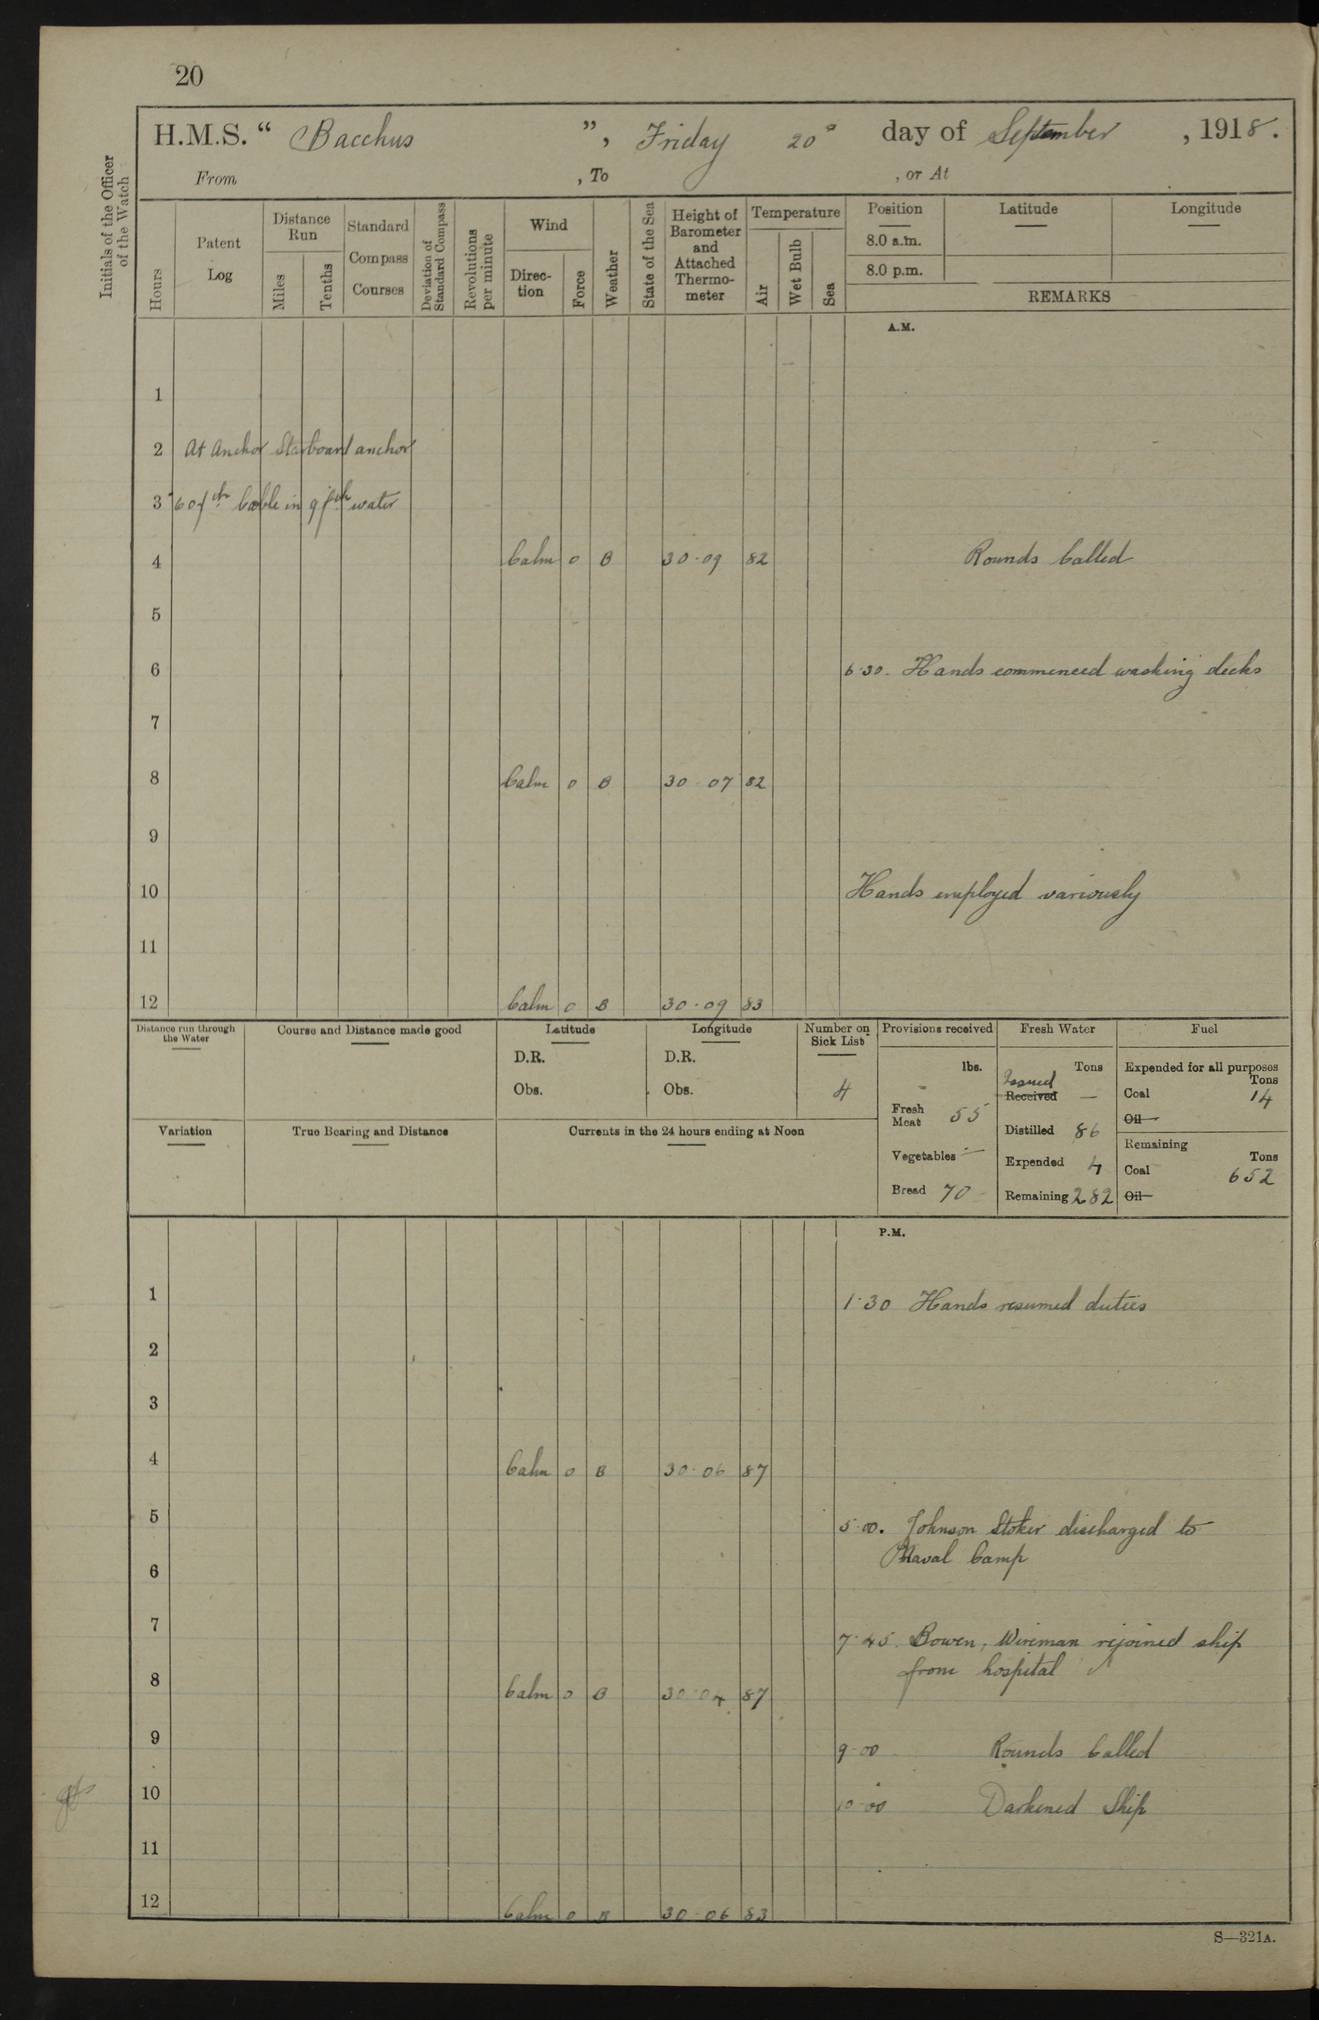 20
H.M.S. “ Bacchus ”, Friday 20th day of September , 1918.
From , To , or At
Initials of the Officer of the Watch
Hours
Patent Log
Distance Run
Miles
Tenths
Standard Compass Courses
Deviation of Standard Compass
Revolutions per minute
Wind
Direction
Force
Weather
State of the Sea
Height of Barometer and Attached Thermometer
Temperature
Air
Wet Bulb
Sea
Position
8.0 a.m.
8.0 p.m.
Latitude
Longitude
REMARKS
A.M.
1
2 At Anchor Starboard anchor
3 60 fth Cable in 9 fth water
4 Calm 0 B 30·09 82 Rounds Called
5
6 6·30. Hands commenced washing decks
7
8 Calm 0 B 30 07 82
9
10 Hands employed variously
11
12 Calm 0 B 30·09 83
Distance run through the Water
Course and Distance made good
Latitude
D.R.
Obs.
Longitude
D.R.
Obs.
Number on Sick List
4
Provisions received
lbs.
Fresh Meat 55
Vegetables —
Bread 70
Fresh Water
Tons
Issued
Received —
Distilled 86
Expended 4
Remaining 282
Fuel
Expended for all purposes
Tons
Coal 14
Oil
Remaining
Tons
Coal 652
Oil
Variation
True Bearing and Distance
Currents in the 24 hours ending at Noon
P.M.
1 1·30 Hands resumed duties
2
3
4 Calm 0 B 30·06 87
5 5·00. Johnson Stoker discharged to
Naval Camp
6
7 7·45. Bowen, Wireman rejoined ship
from hospital
8 Calm 0 B 30·04 87
9 9·00 Rounds Called
10 10·00 Darkened Ship
11
12 Calm 0 B 30·06 83
S—321A.